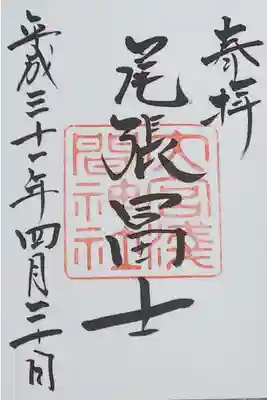 奉拝
尾張冨士
大宮浅
間神社
平成三十一年四月三十日